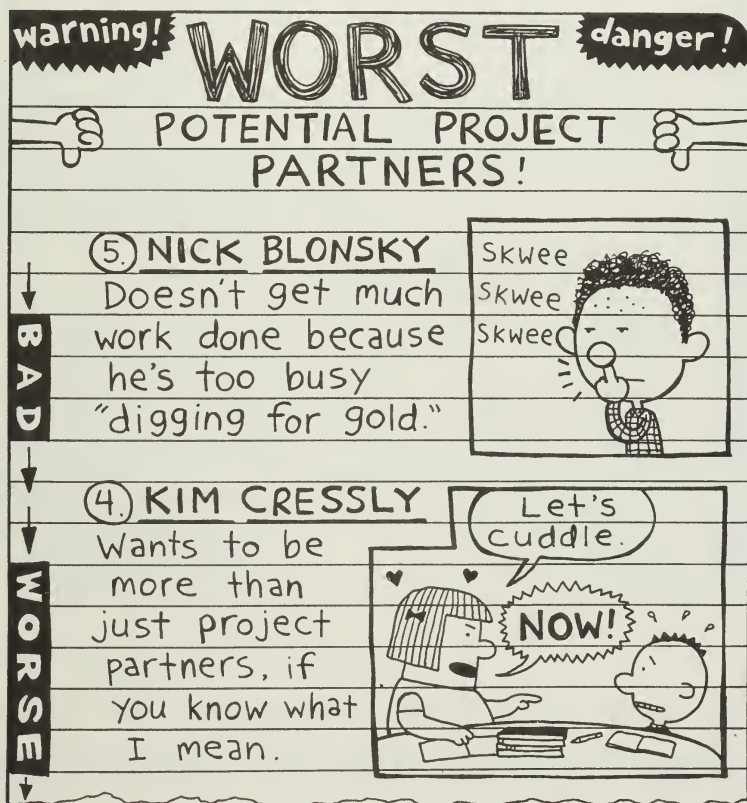 warning!
WORST
danger!
POTENTIAL PROJECT
PARTNERS!
5. NICK BLONSKY
Doesn't get much
work done because
he's too busy
"digging for gold."
Skwee
Skwee
Skwee
BAD
4. KIM CRESSLY
Wants to be
more than
just project
partners, if
you know what
I mean.
Let's
cuddle.
NOW!
WORSE